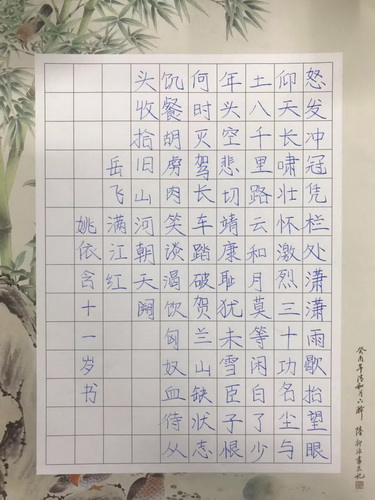 怒发冲冠凭栏处潇潇雨歇抬望眼
仰天长啸壮怀激烈三十功名尘与
土八千里路云和月莫等闲白了少
年头空悲切靖康耻犹未雪臣子恨
何时灭驾长车踏破贺兰山缺状志
饥餐胡虏肉笑谈渴饮匈奴血侍从
头收拾旧山河朝天阙
岳飞满江红
姚依含十一岁书